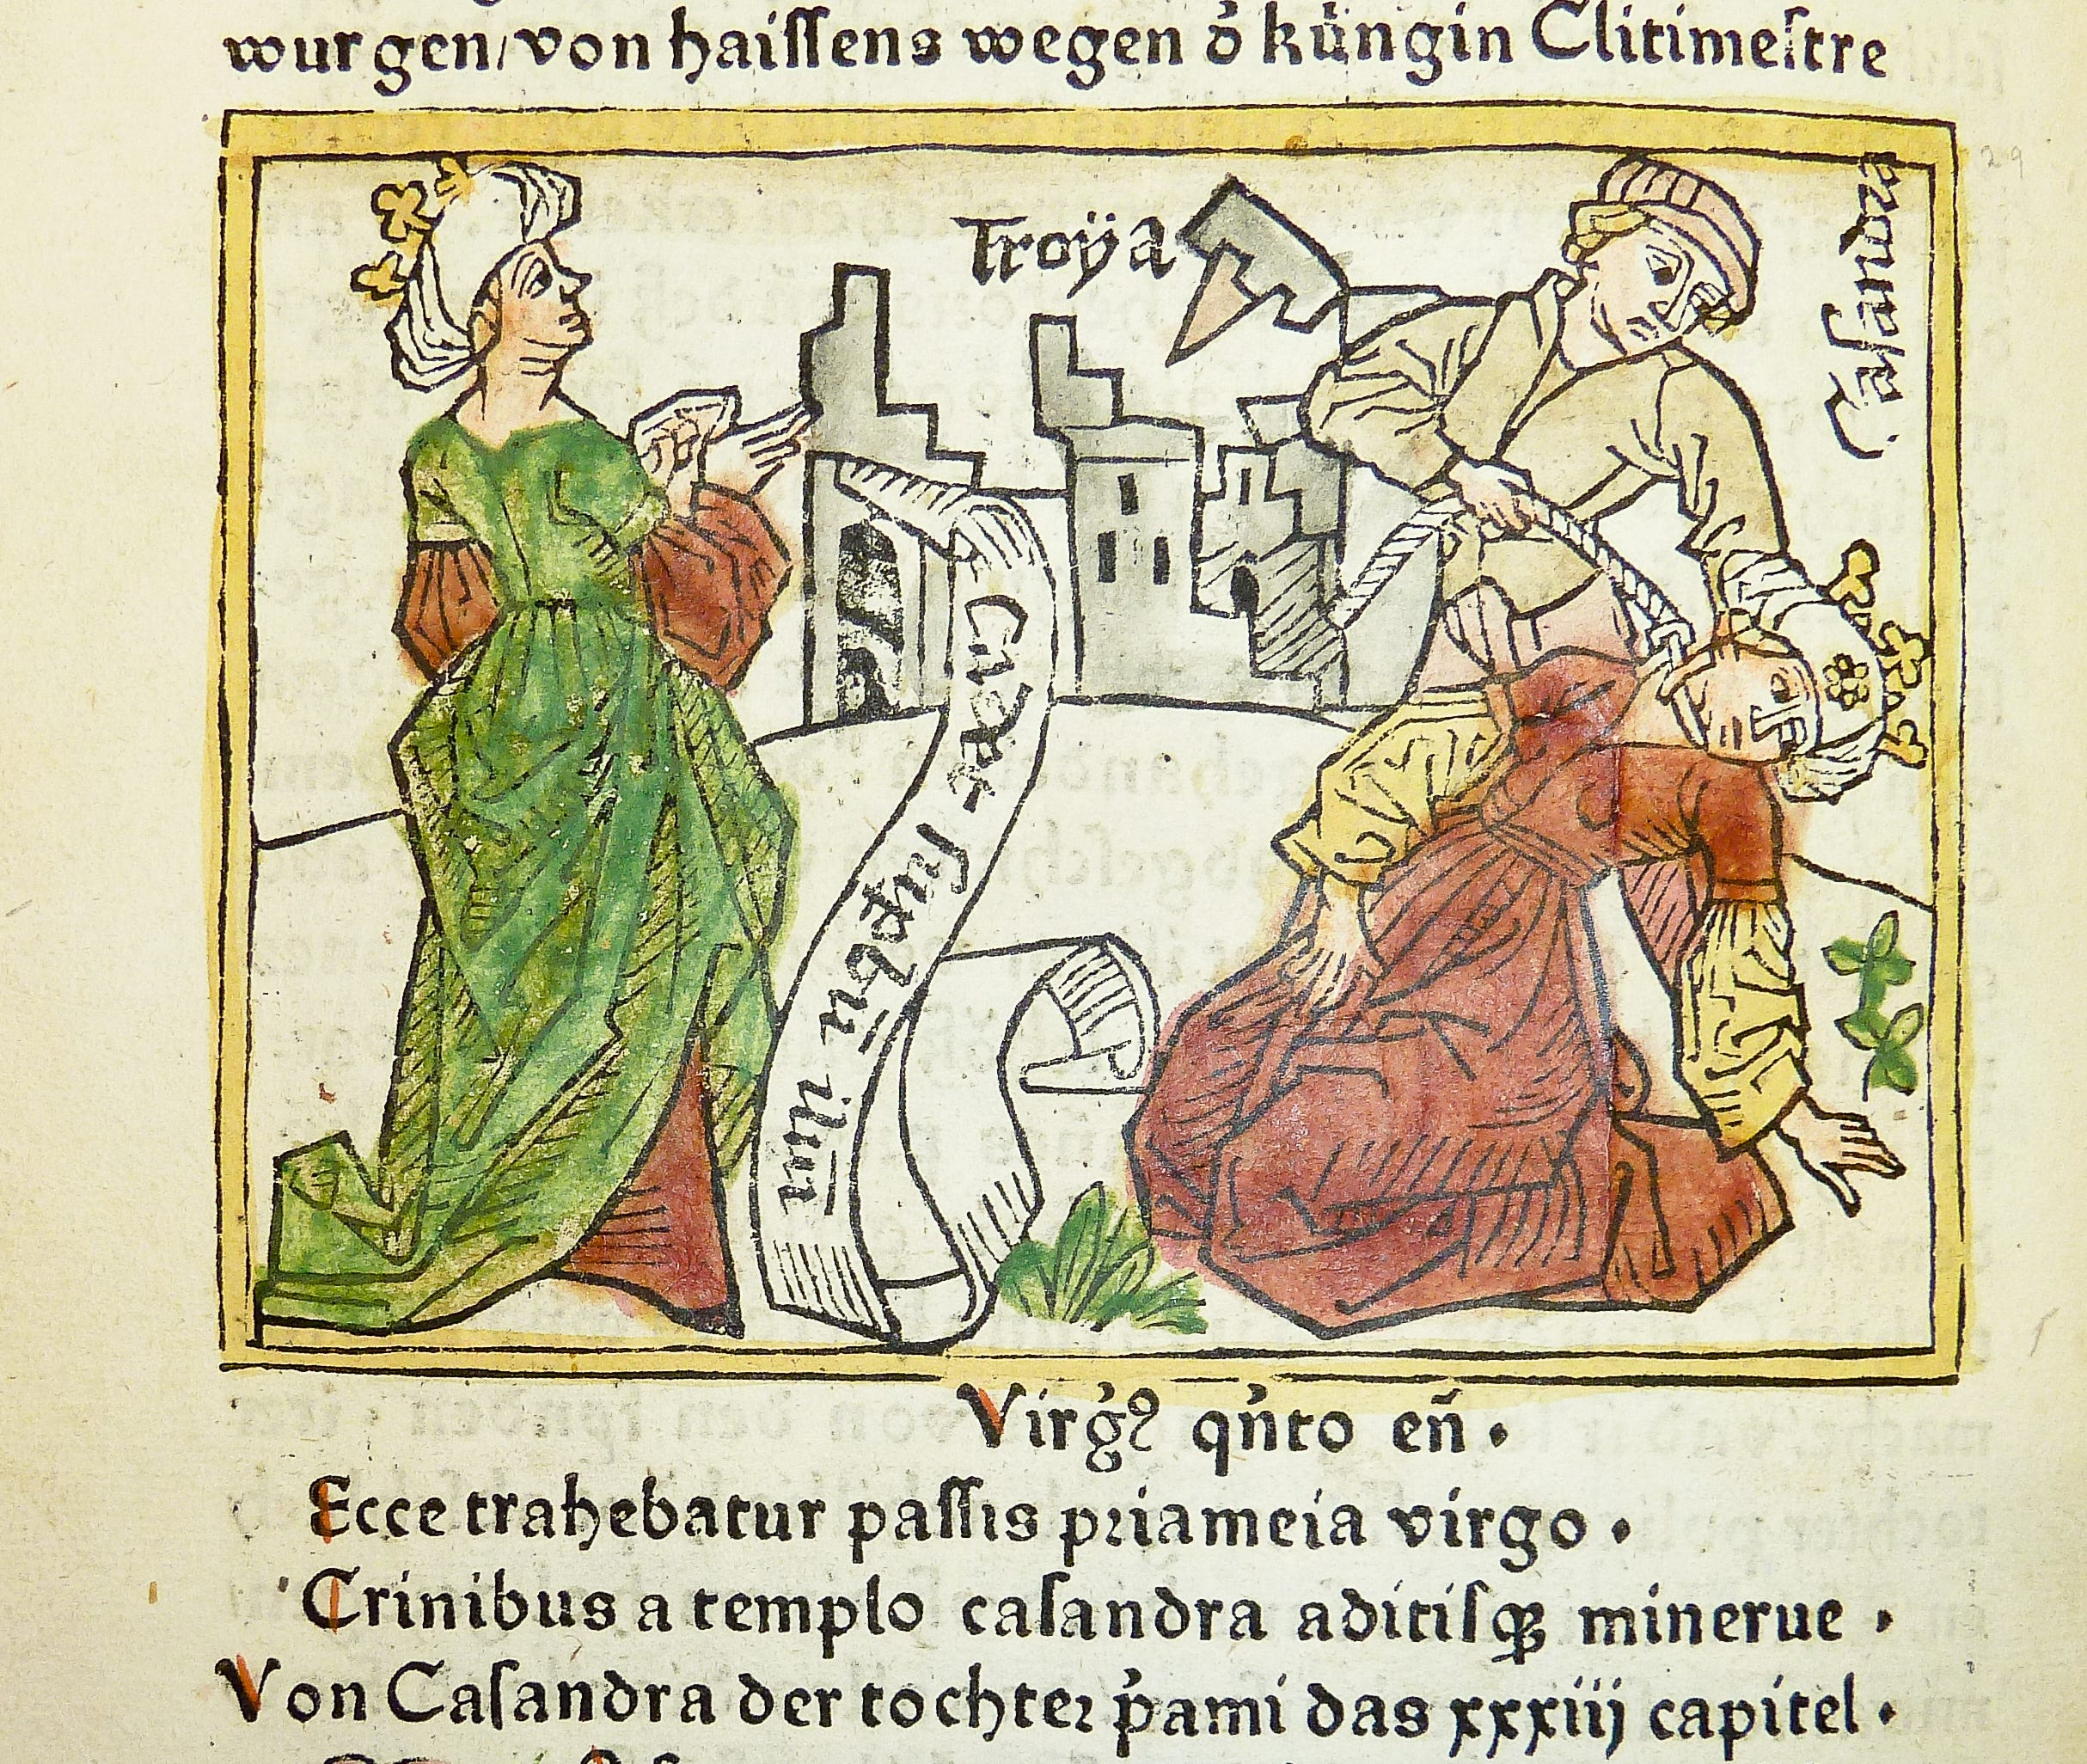 wurgen/von haiſſens wegen d̕ küngin Clitimeſtre
Troÿa
Caſandra
Cadet ſupbū iliū
Virg̕ꝰ qn̄to en̄.
Ecce trahebatur paſſis priameia virgo.
Crinibus a templo caſandra aditiſqꝫ minerue.
Von Caſandra der tochter p̕ami das xxxiij capitel.